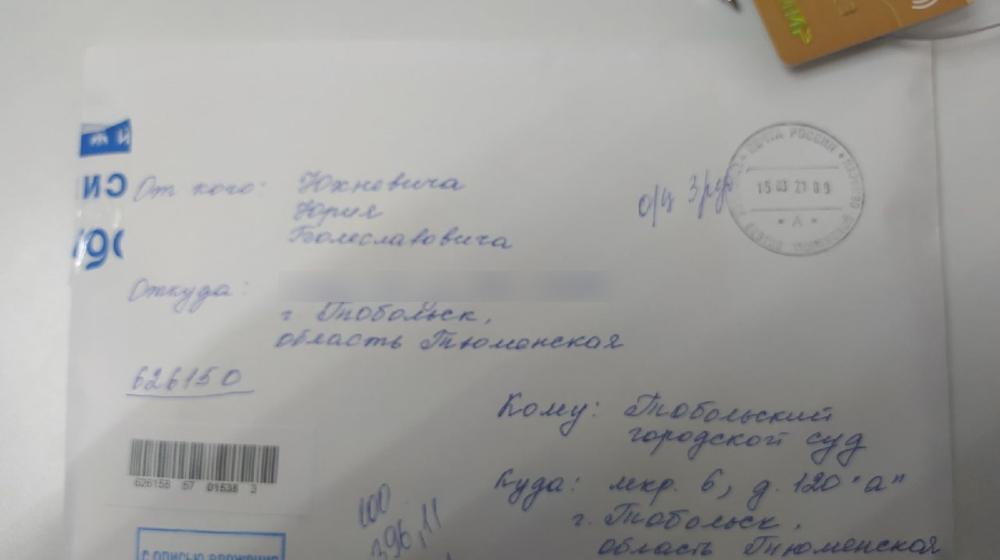 От кого: Юхневича
Юрия
Болеславовича
о/ц 3 руб
ПОЧТА РОССИИ
15 03 21 09
А
Откуда:
г Тобольск,
область Тюменская
626150
Кому: Тобольский
городской суд
Куда: мкр. 6, д. 120 "а"
г. Тобольск,
область Тюменская
626158 57 01538 3
100
396,11
С ОПИСЬЮ ВЛОЖЕНИЯ